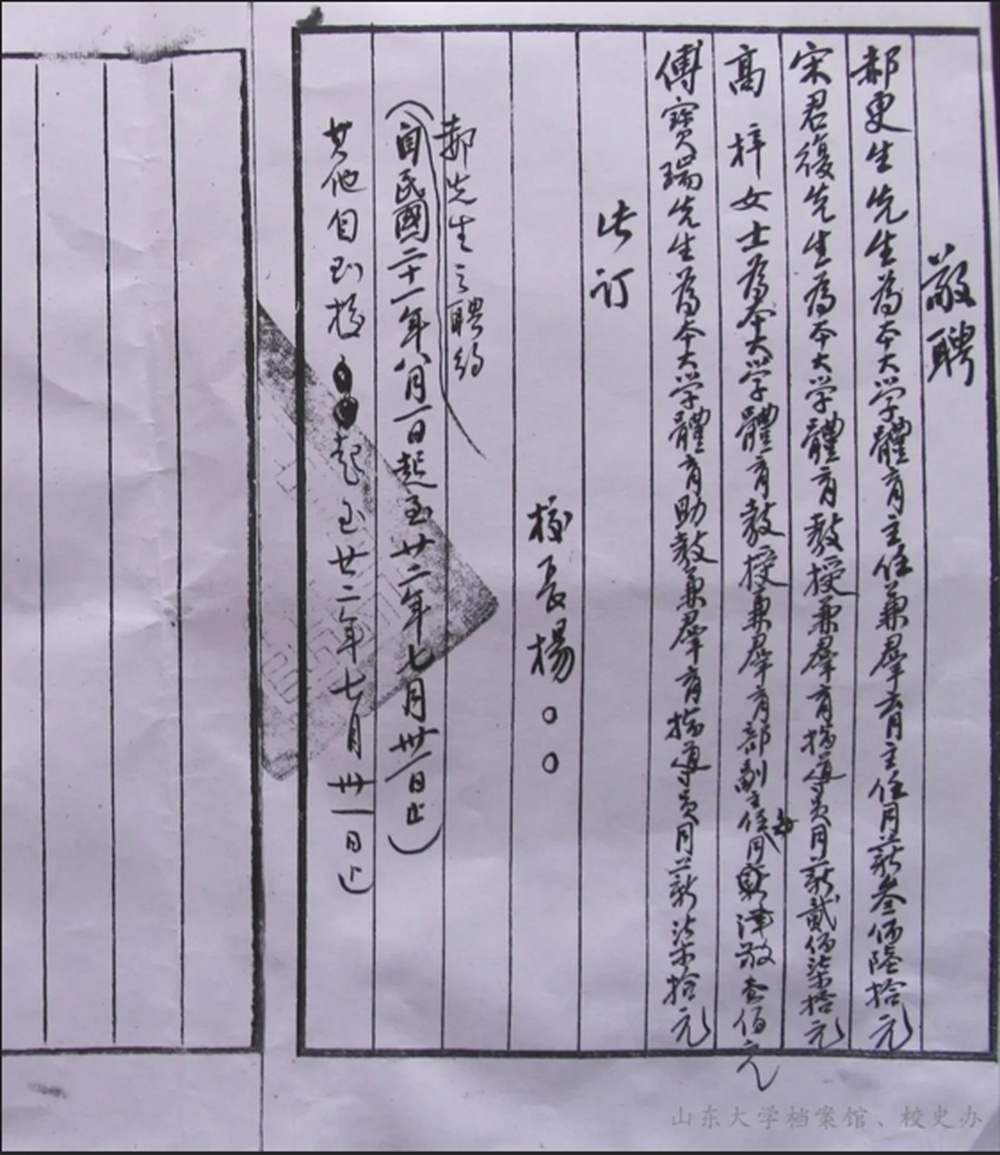 敬聘
郝更生先生為本大学體育主任兼羣育主任月薪叁佰陸拾元
宋君復先生為本大学體育教授兼羣育指導員月薪貳佰柒拾元
高梓女士為本大学體育教授兼羣育部副主任月津敬壹佰元
傅寶瑞先生為本大学體育助教兼羣育指導員月薪柒拾元
此訂
校長楊○○
郝先生之聘約
(自民國二十一年八月一日起至廿二年七月卅一日止)
其他自到校起至廿二年七月卅一日止)
山东大学档案馆、校史办